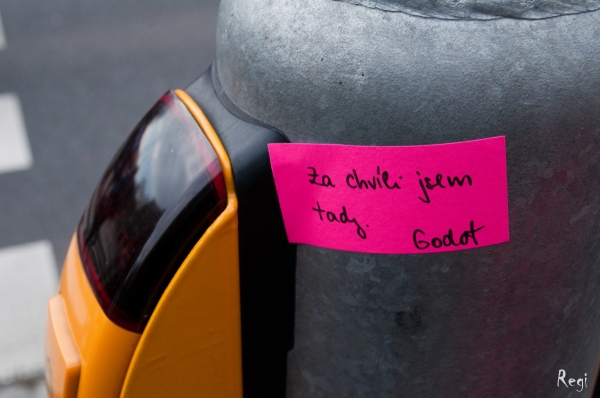 Za chvíli jsem
tady.
Godot
Regi